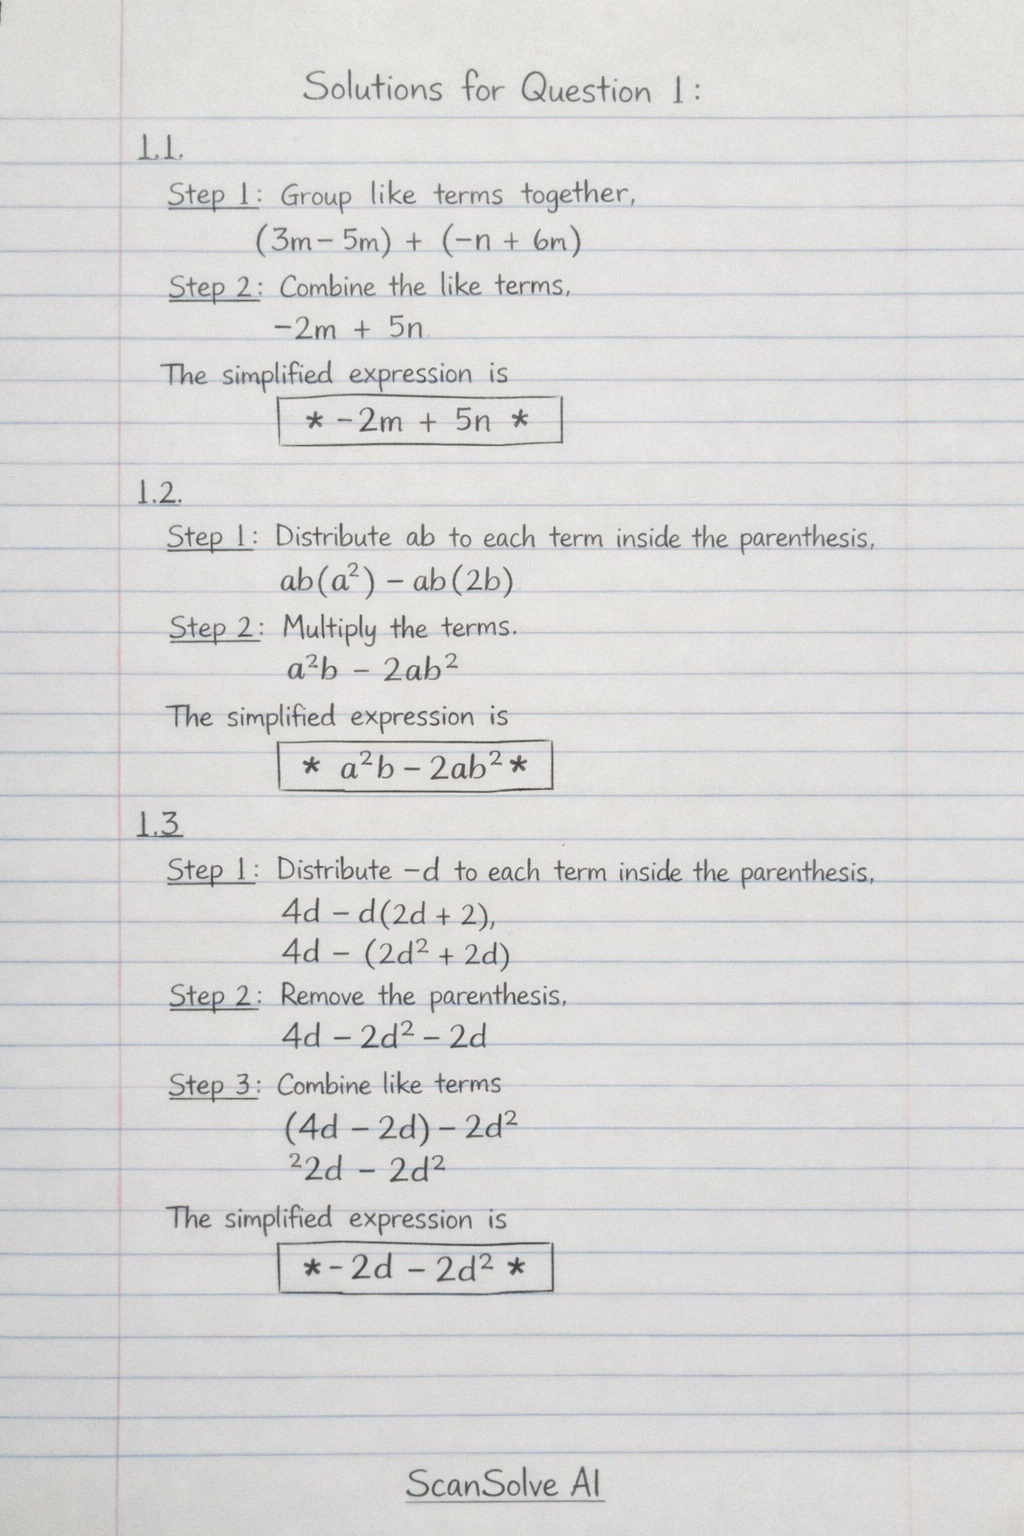 Solutions for Question 1:
1.1.
Step 1: Group like terms together,
(3m – 5m) + (–n + 6m)
Step 2: Combine the like terms,
–2m + 5n
The simplified expression is
* –2m + 5n *
1.2.
Step 1: Distribute ab to each term inside the parenthesis,
ab(a²) – ab(2b)
Step 2: Multiply the terms.
a²b – 2ab²
The simplified expression is
* a²b – 2ab² *
1.3
Step 1: Distribute –d to each term inside the parenthesis,
4d – d(2d + 2),
4d – (2d² + 2d)
Step 2: Remove the parenthesis,
4d – 2d² – 2d
Step 3: Combine like terms
(4d – 2d) – 2d²
²2d – 2d²
The simplified expression is
* - 2d – 2d² *
ScanSolve AI